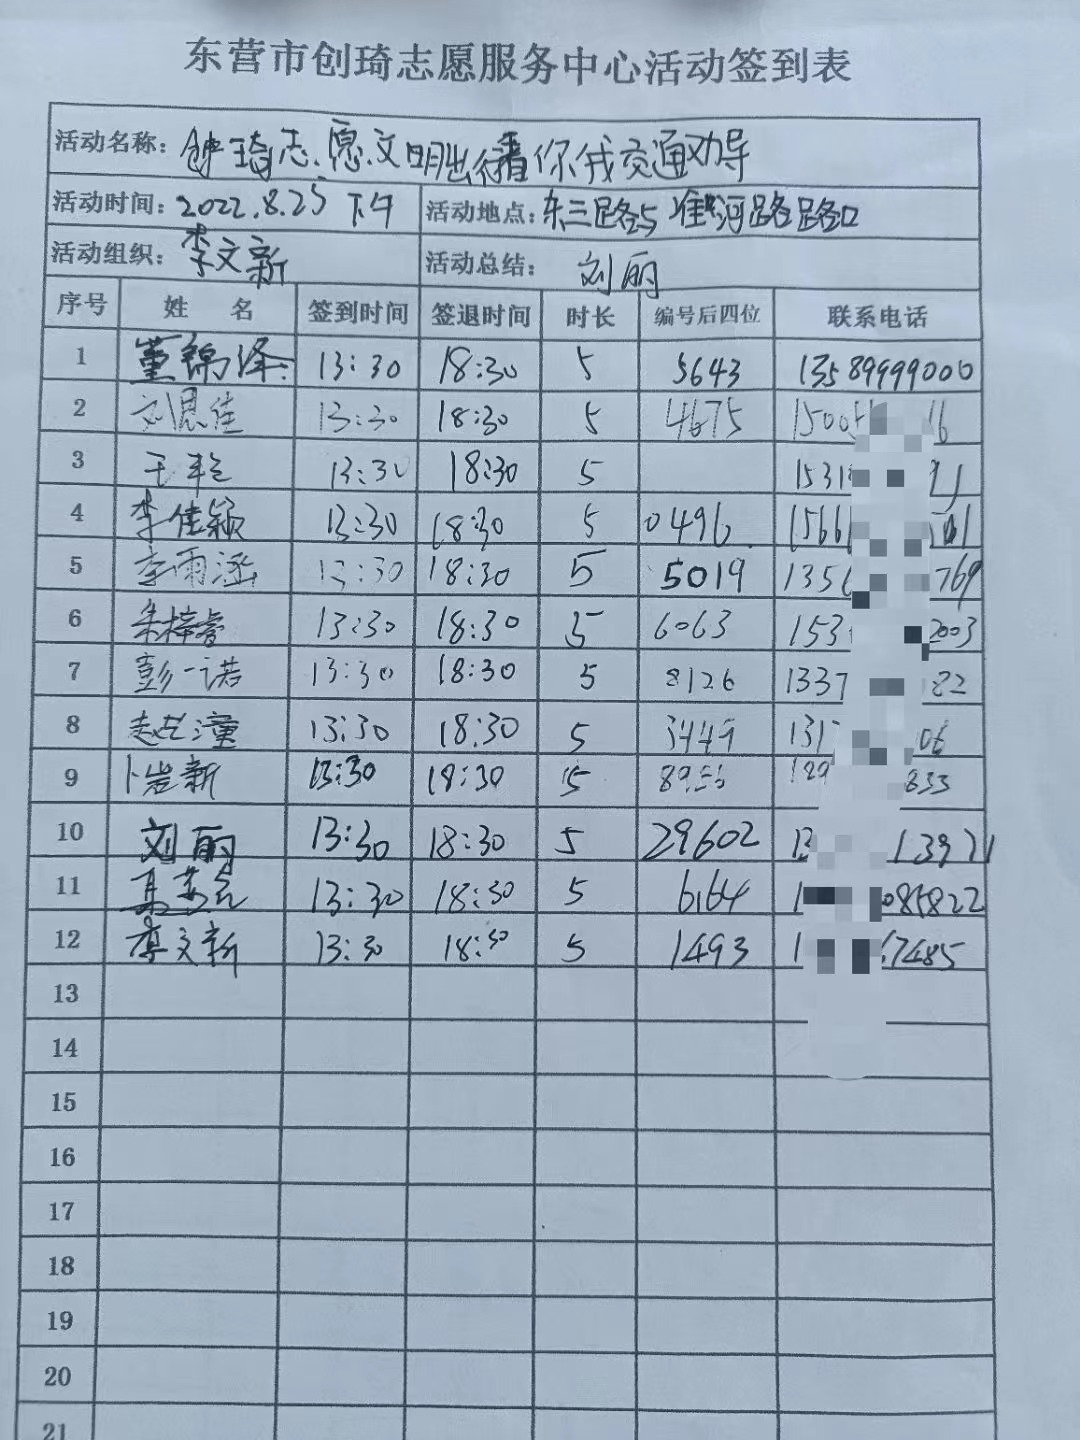 东营市创琦志愿服务中心活动签到表
活动名称: 琦志愿文明出行看你我交通劝导
活动时间: 2022.8.25 下午 活动地点: 东三路与淮河路路口
活动组织: 李文新 活动总结: 刘丽
序号 姓 名 签到时间 签退时间 时长 编号后四位 联系电话
1 董锦泽 13:30 18:30 5 5643 13589999000
2 刘恩佳 13:30 18:30 5 4675
3 王艳 13:30 18:30 5
4 李佳颖 13:30 18:30 5 0496
5 李雨涵 13:30 18:30 5 5019
6 朱梓睿 13:30 18:30 5 6063
7 彭一诺 13:30 18:30 5 8126
8 13:30 18:30 5 3449
9 卜岩新 13:30 18:30 5
10 刘丽 13:30 18:30 5 29602
11 13:30 18:30 5 6164
12 李文新 13:30 18:30 5 1493
13
14
15
16
17
18
19
20
21